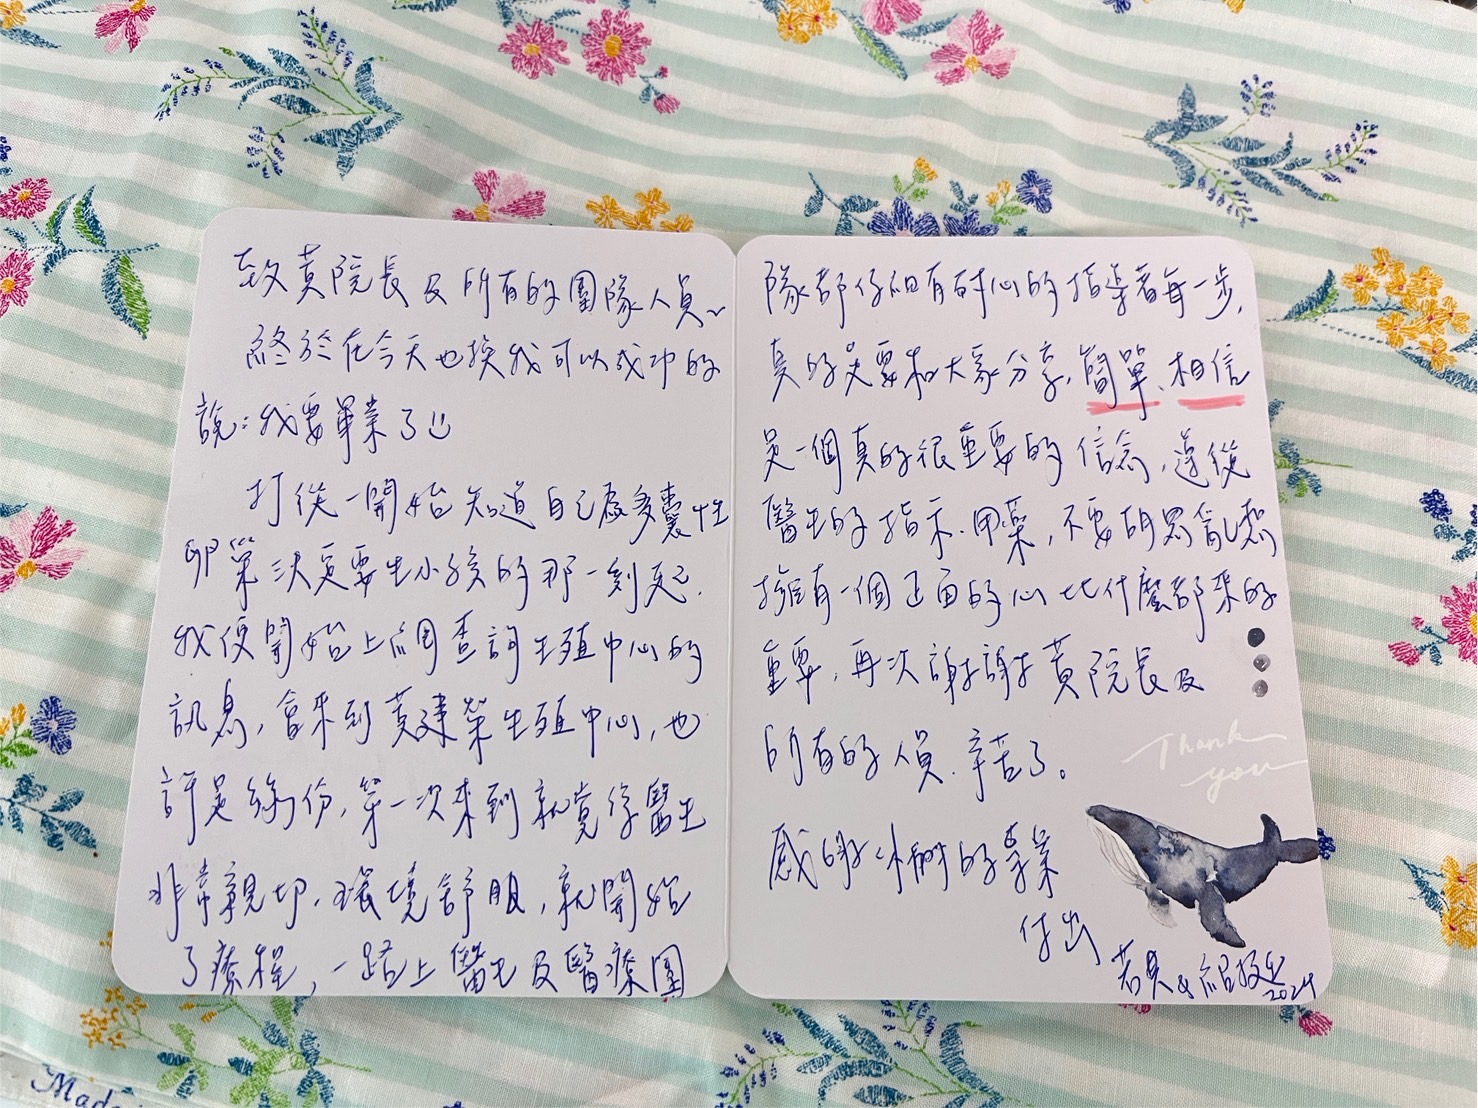 致黃院長及所有的團隊人員~
終於在今天也換我可以成功的
說:我要畢業了
打從一開始知道自己為多囊性
卵巢決定要生小孩的那一刻起.
我便開始上網查詢生殖中心的
訊息, 會來到黃建榮生殖中心, 也
許是緣份, 第一次來到就覺得醫生
非常親切, 環境舒服, 就開始
了療程, 一路上醫生及醫療團
隊都仔細有耐心的指導著每一步,
真的是要和大家分享, 簡單、相信
是一個真的很重要的信念, 遵從
醫生的指示.用藥, 不要胡思亂想
擁有一個正面的心比什麼都來的
重要, 再次謝謝黃院長及
所有的人員.辛苦了。
Thank
you
感謝小樹的專業
付出
2024
Made